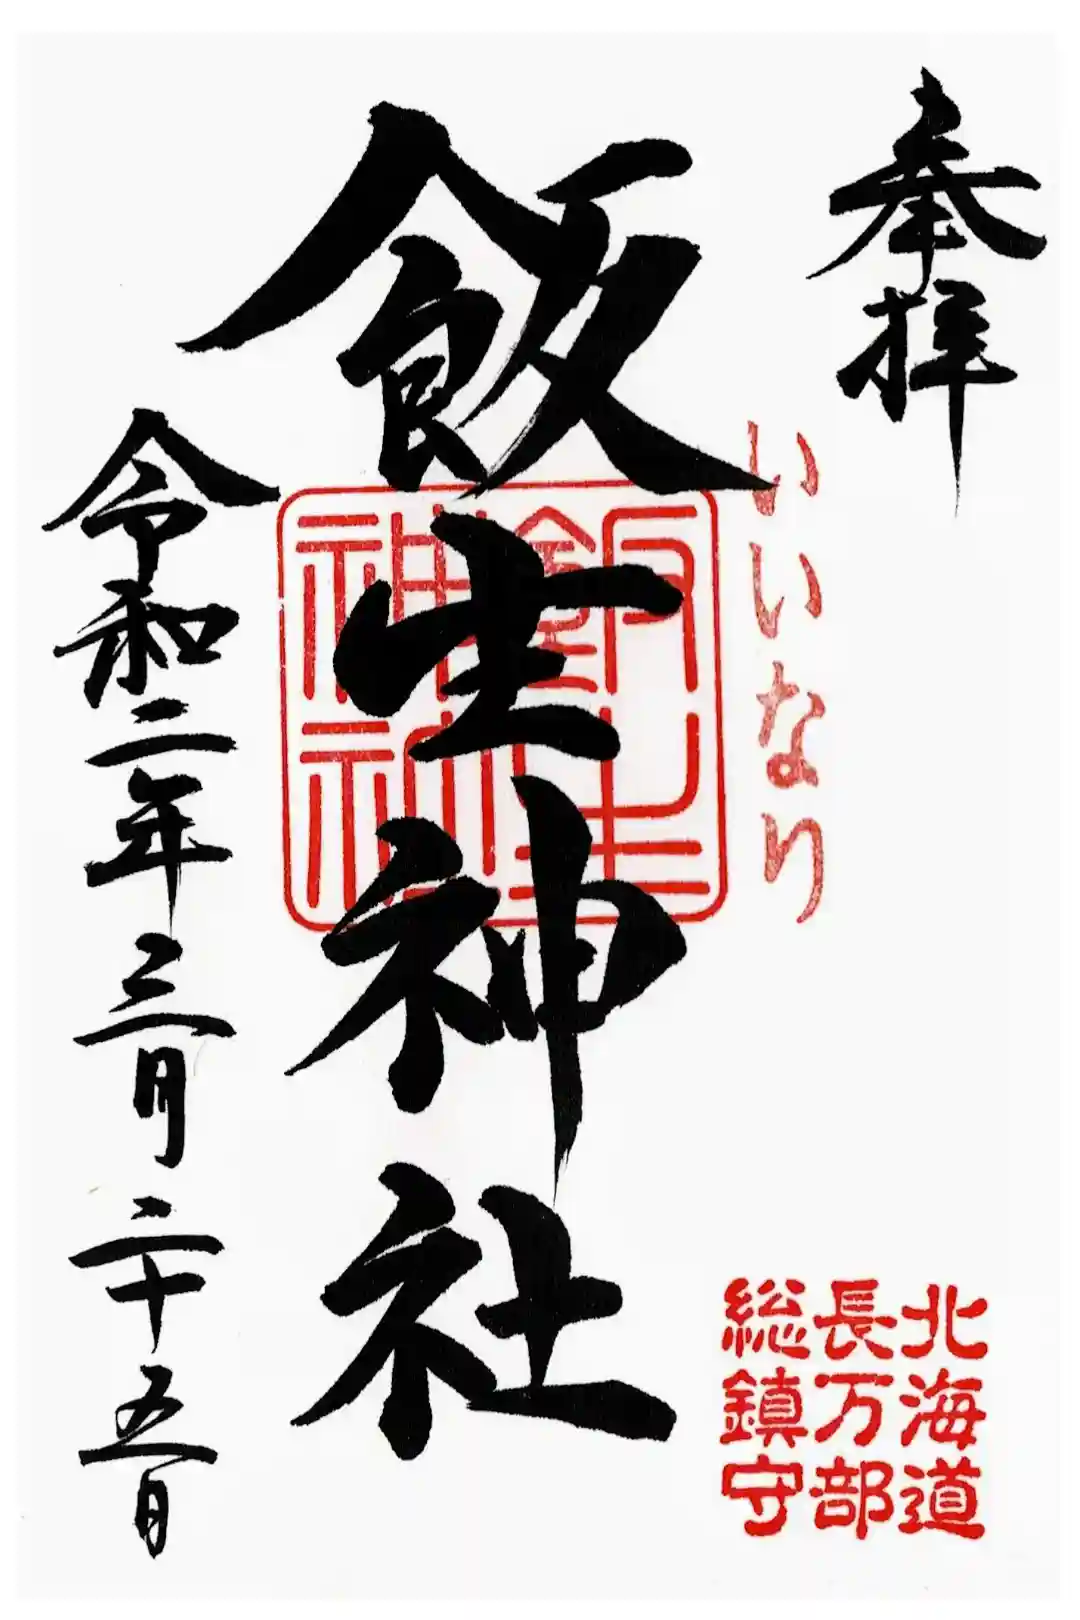 奉拝
いいなり
北海道
長万部
総鎮守
飯生神社
飯生
神社
令和二年三月二十五日